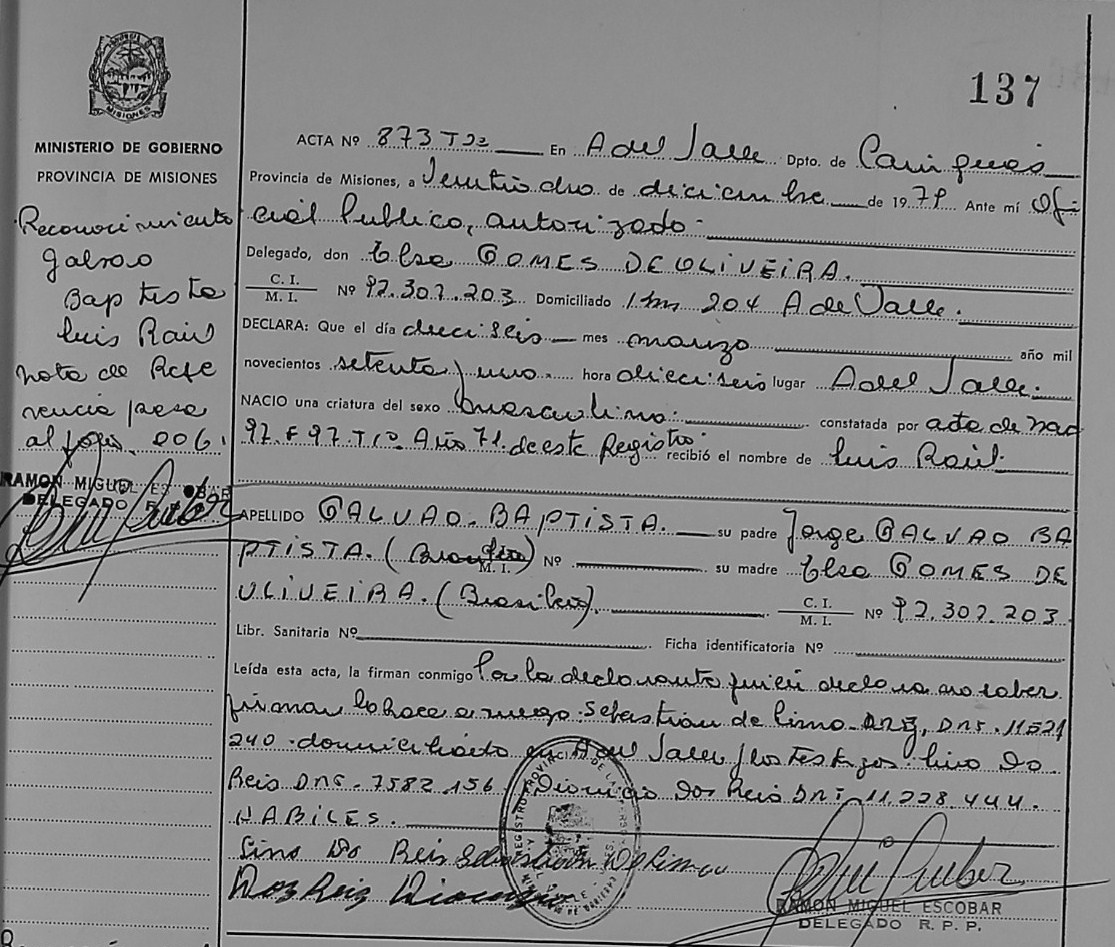 137
MISIONES
MINISTERIO DE GOBIERNO
PROVINCIA DE MISIONES
Reconocimiento
Galvao
Baptista
Luis Raul
nota de Refe
rencia pasa
al folio 006.
RAMON MIGUEL ESCOBAR
DELEGADO R. P. P.
ACTA Nº 873 T En A del Valle Dpto. de
Provincia de Misiones, a de diciembre de 1979 Ante mí Ofi
cial Publico, autorizado
Delegado, don Elsa GOMES DE OLIVEIRA.
C. I. / M. I. Nº 92.302.203 Domiciliado 204 A de Valle.
DECLARA: Que el día dieciseis mes marzo año mil
novecientos setenta y uno hora dieciseis lugar A del Valle.
NACIO una criatura del sexo masculino constatada por acta de nac
97. F 97. Tº Año 71. de este Registro. recibió el nombre de Luis Raúl
APELLIDO GALVAO BAPTISTA. su padre Jorge GALVAO BA
PTISTA. ( ) M. I. Nº su madre Elsa GOMES DE
OLIVEIRA. (Brasilera). C. I. / M. I. Nº 92.302.203
Libr. Sanitaria Nº Ficha identificatoria Nº
Leída esta acta, la firman conmigo la declarante quien declara no saber
firmar lo hace a ruego Sebastian de Lima DNI. 11521
240 domiciliado en A del Valle y los testigos Lino Do
Reis DNI. 7582.156 y Dionicio Dos Reis DNI 11.228.444.
HABILES.
Lino Do Reis Sebastian De Lima
Dos Reis Dionicio
RAMON MIGUEL ESCOBAR
DELEGADO R. P. P.